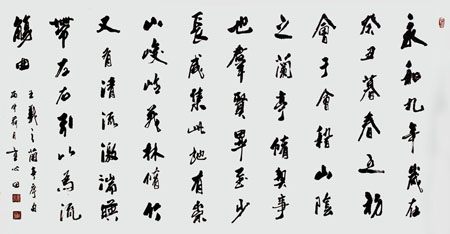 永和九年歲在
癸丑暮春之初
會于會稽山陰
之蘭亭脩禊事
也羣賢畢至少
長咸集此地有崇
山峻嶺茂林脩竹
又有清流激湍暎
帶左右引以為流
觴曲
王羲之蘭亭序句
丙申 月 心田